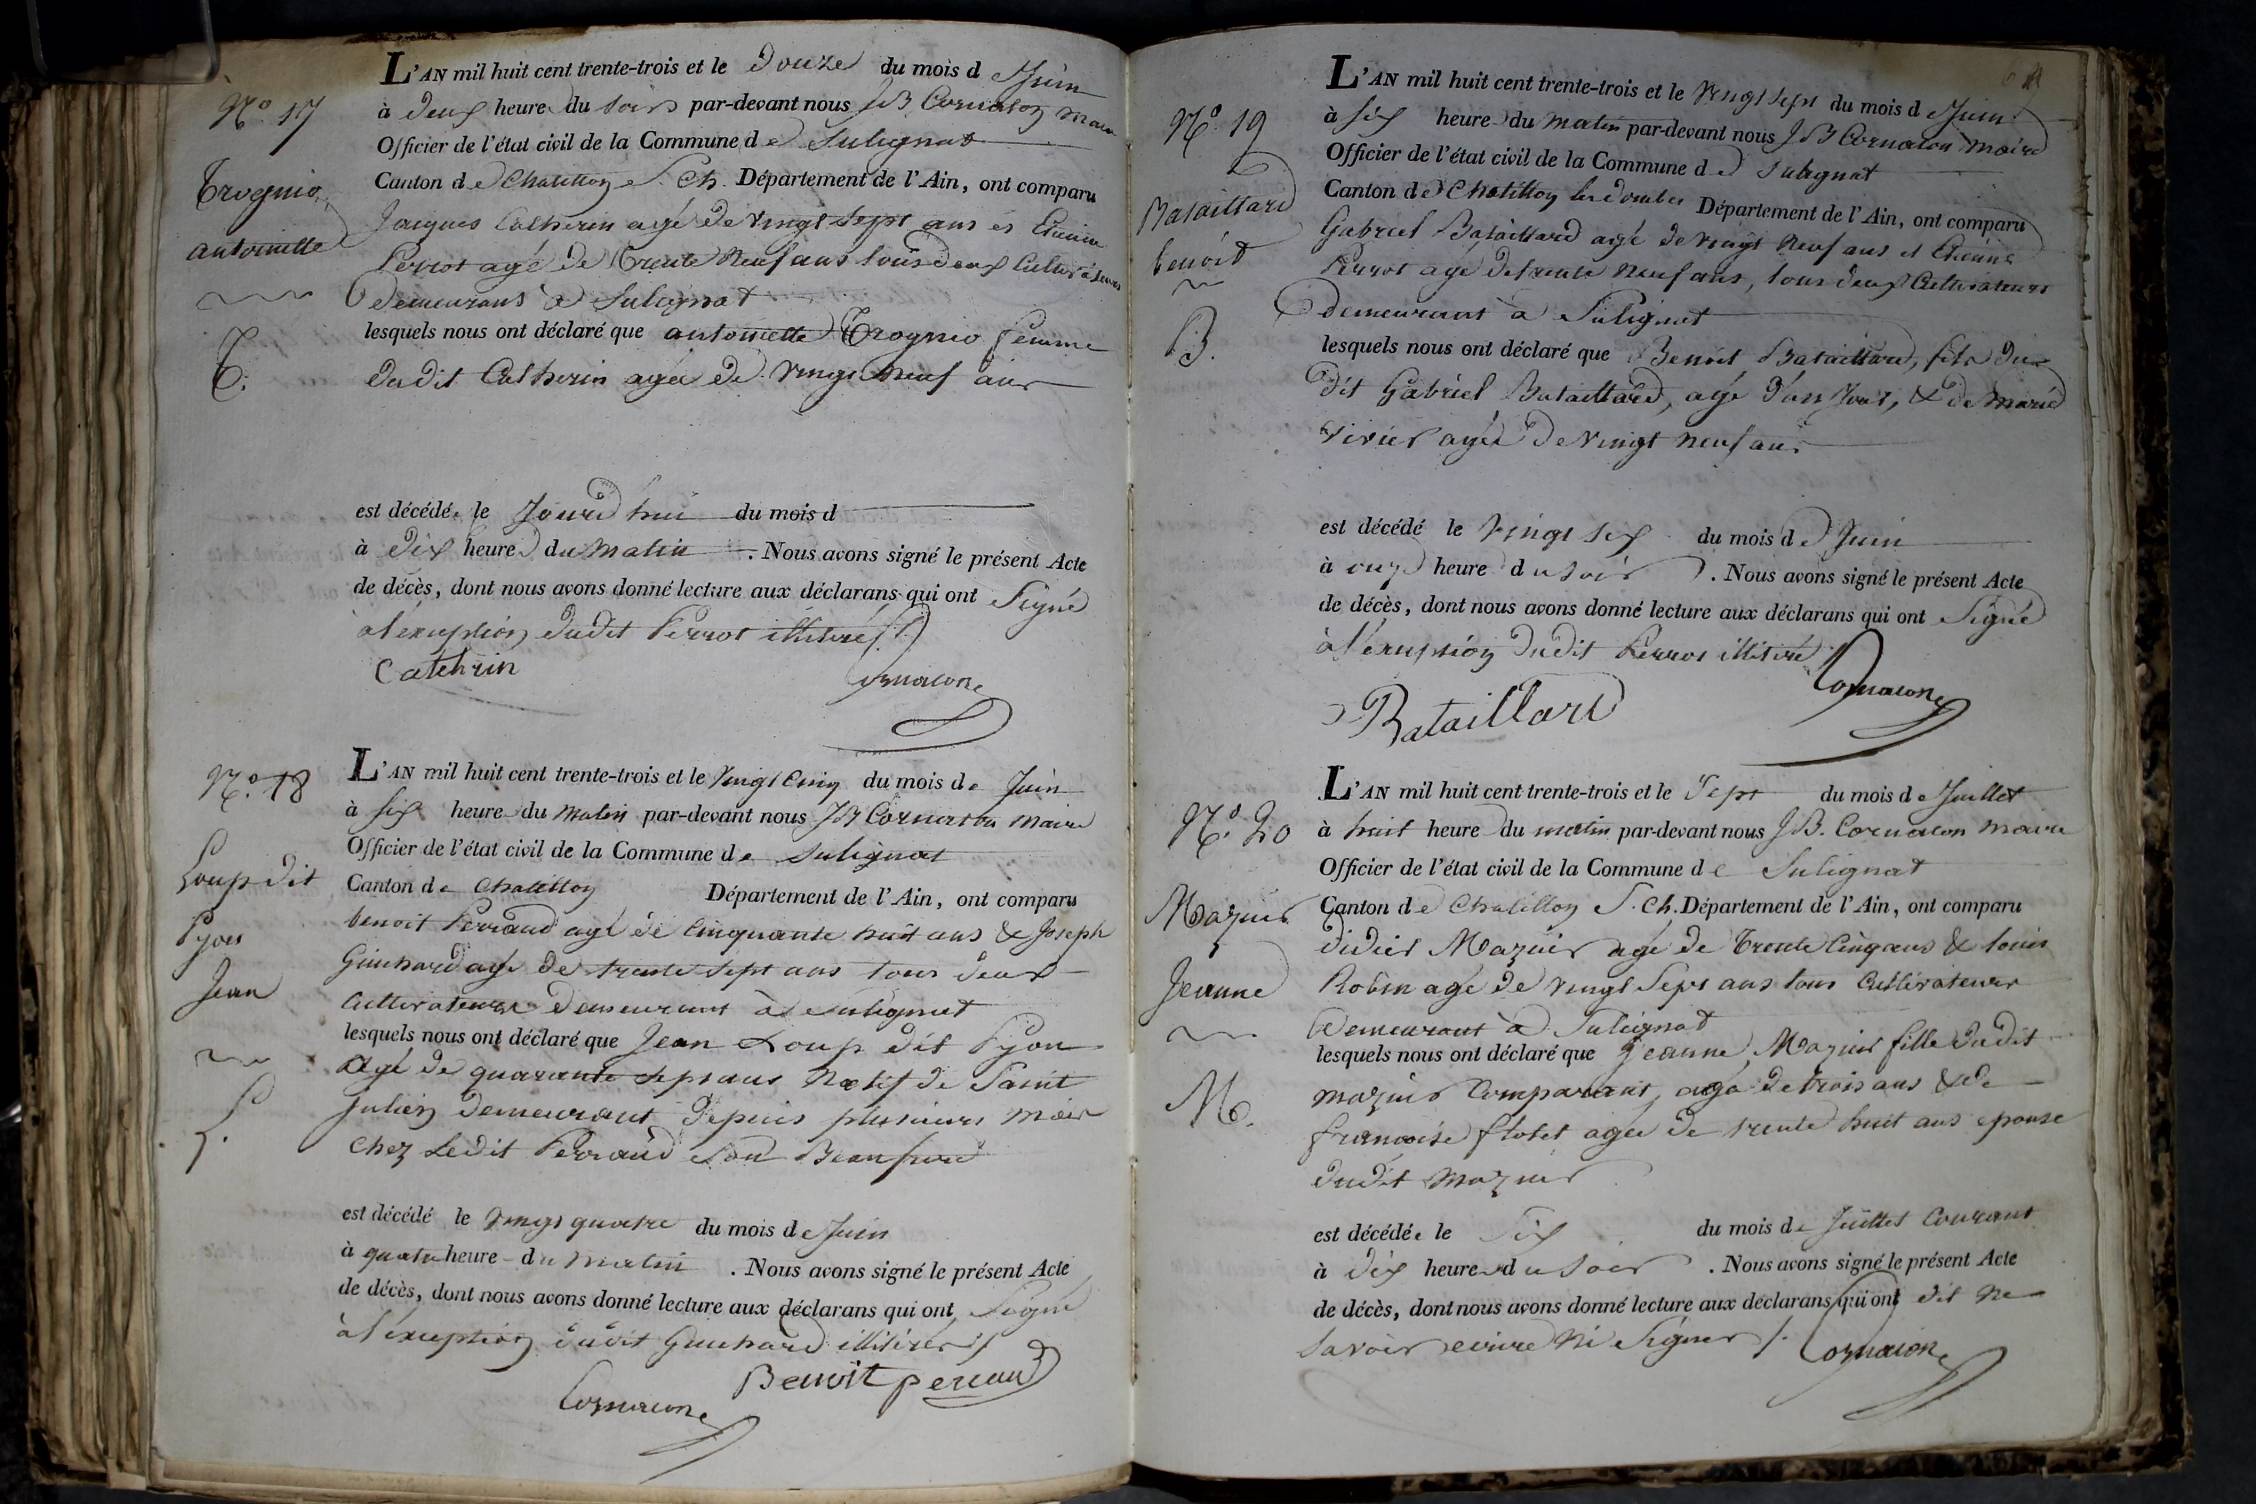 N.o 17
Trognio
antoinette
T.
L'AN mil huit cent trente-trois et le Douze du mois d Juin
à Deux heure du soir par-devant nous JB Cornaton maire
Officier de l'état civil de la Commune de Sulignat
Canton de Chatillon S. Ch. Département de l'Ain, ont comparu
Jacques Catherin agé de vingt sept ans et Etienne
Perrot agé de Trente Neuf ans tous deux Cultivateurs
Demeurans à Sulignat
lesquels nous ont déclaré que antoinette Trognio femme
dudit Catherin agée de vingt Neuf ans
est décédée le Jourd'hui du mois d
à Dix heure du Matin. Nous avons signé le présent Acte
de décès, dont nous avons donné lecture aux déclarans qui ont Signé
à l'éxeption dudit Perrot illitéré
Catehrin
Cornaton
N.o 18
Loup dit
Pyon
Jean
L.
L'AN mil huit cent trente-trois et le Vingt Cinq du mois de Juin
à six heure du Matin par-devant nous JB Cornaton Maire
Officier de l'état civil de la Commune de Sulignat
Canton de Chatillon Département de l'Ain, ont comparu
benoit Perraud agé de Cinquante huit ans & Joseph
Guichard agé de trente sept ans tous deux
Cultivateurs Demeurant à Sulignat
lesquels nous ont déclaré que Jean Loup dit Pyon
Agé de quarante sept ans Natif de Saint
Julien demeurant Depuis plusieurs mois
chez Ledit Perraud son Beaufrere
est décédé le vingt quatre du mois de Juin
à quatre heure du Matin. Nous avons signé le présent Acte
de décès, dont nous avons donné lecture aux déclarans qui ont Signé
à l'éxception dudit Guichard illitéré
Benoit peraud
Cornaton
N.o 19
Bataillard
benoit
B.
L'AN mil huit cent trente-trois et le Vingt sept du mois d Juin
à six heure du matin par-devant nous JB Cornaton maire
Officier de l'état civil de la Commune de Sulignat
Canton de Chatillon les dombes Département de l'Ain, ont comparu
Gabriel Bataillard agé de vingt Neuf ans et Etienne
Perrot agé de trente Neuf ans, tous deux Cultivateurs
demeurant à Sulignat
lesquels nous ont déclaré que Benoit Bataillard, fils du
dit Gabriel Bataillard, agé d'un Jour, & de Marie
Vivier agée de vingt neuf ans
est décédé le Vingt six du mois de Juin
à onze heure du soir. Nous avons signé le présent Acte
de décès, dont nous avons donné lecture aux déclarans qui ont Signé
à l'éxeption dudit Perrot illitéré
Cornaton
Bataillard
N.o 20
Mazuir
Jeanne
M.
L'AN mil huit cent trente-trois et le Sept du mois de Juillet
à huit heure du matin par-devant nous JB. Cornaton maire
Officier de l'état civil de la Commune de Sulignat
Canton de Chatillon S. Ch. Département de l'Ain, ont comparu
Didier Mazuir agé de Trente Cinq ans & louis
Robin agé de vingt Sept ans tous Cultivateurs
Demeurant à Sulignat
lesquels nous ont déclaré que Jeanne Mazuir fille dudit
mazuir Comparant, agée de trois ans & de
francoise flotet agée de trente huit ans epouse
dudit mazuir
est décédée le Six du mois de Juillet Courant
à dix heure du soir. Nous avons signé le présent Acte
de décès, dont nous avons donné lecture aux déclarans qui ont dit ne
savoir ecrire Ni Signer
Cornaton